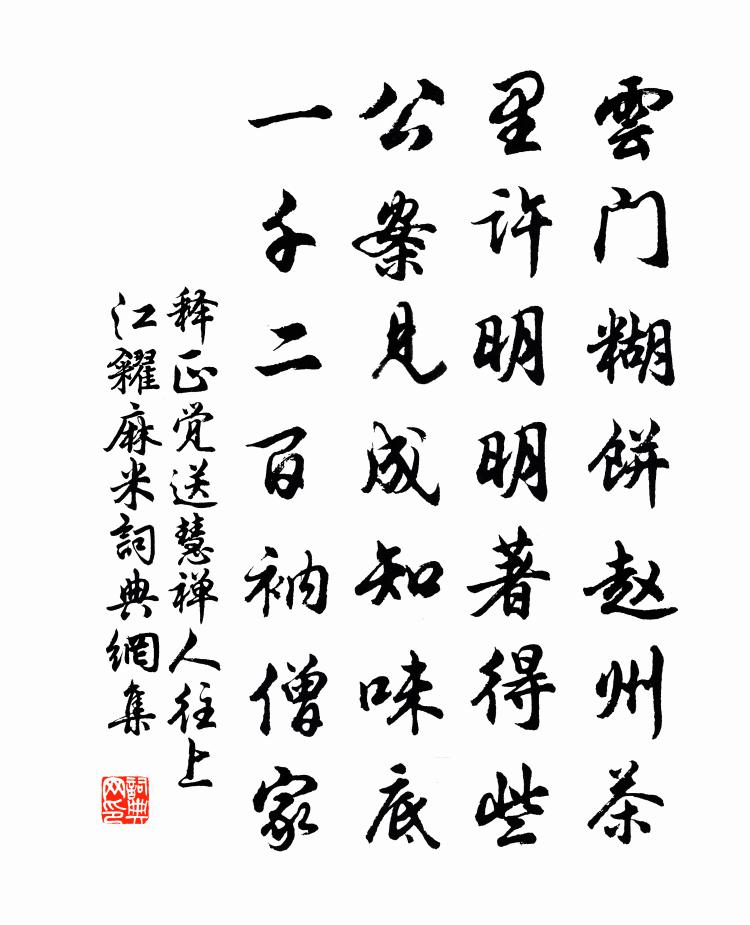 雲门糊餅赵州茶
里许明明著得些
公案見成知味底
一千二百衲僧家
释正觉送慧禅人往上
江糴麻米詞典網集
詞典
网印